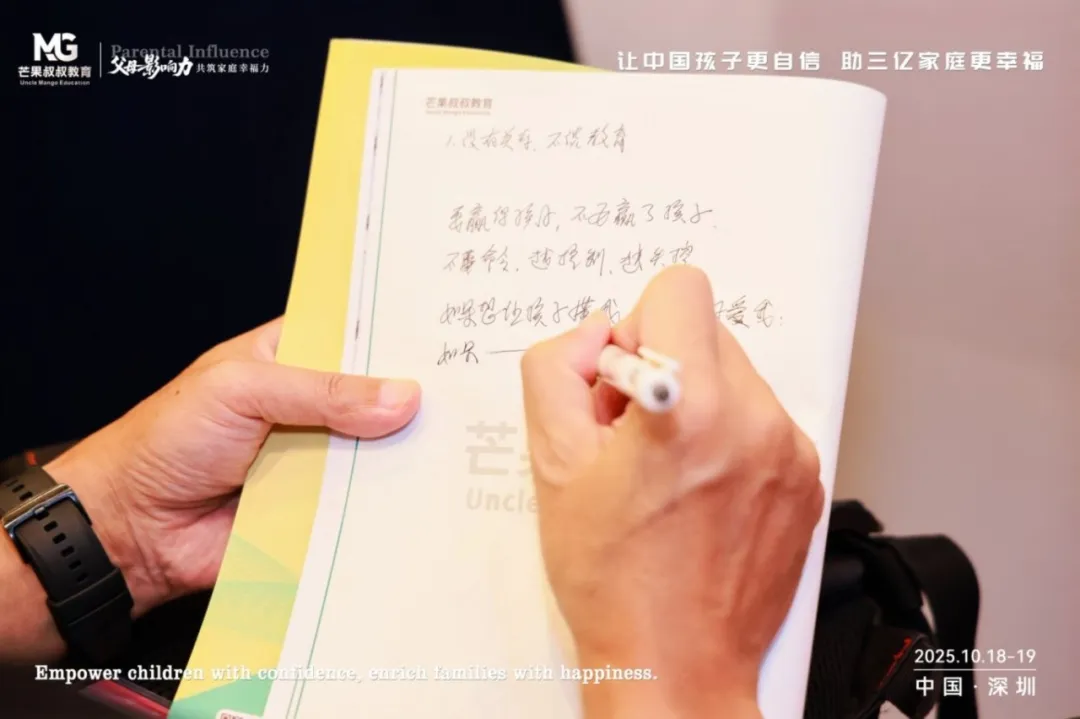 MG
芒果叔叔教育
Uncle Mango Education
Parental Influence
父母影响力 共筑家庭幸福力
让中国孩子更自信 助三亿家庭更幸福
芒果叔叔教育
Uncle Mango Education
1.没有关系、不侭教育
要赢得孩子,不要赢了孩子.
不要命令、越控制、越失控
如果想让孩子
爱我:
如果——
芒
Uncle
Empower children with confidence, enrich families with happiness.
2025.10.18-19
中国·深圳